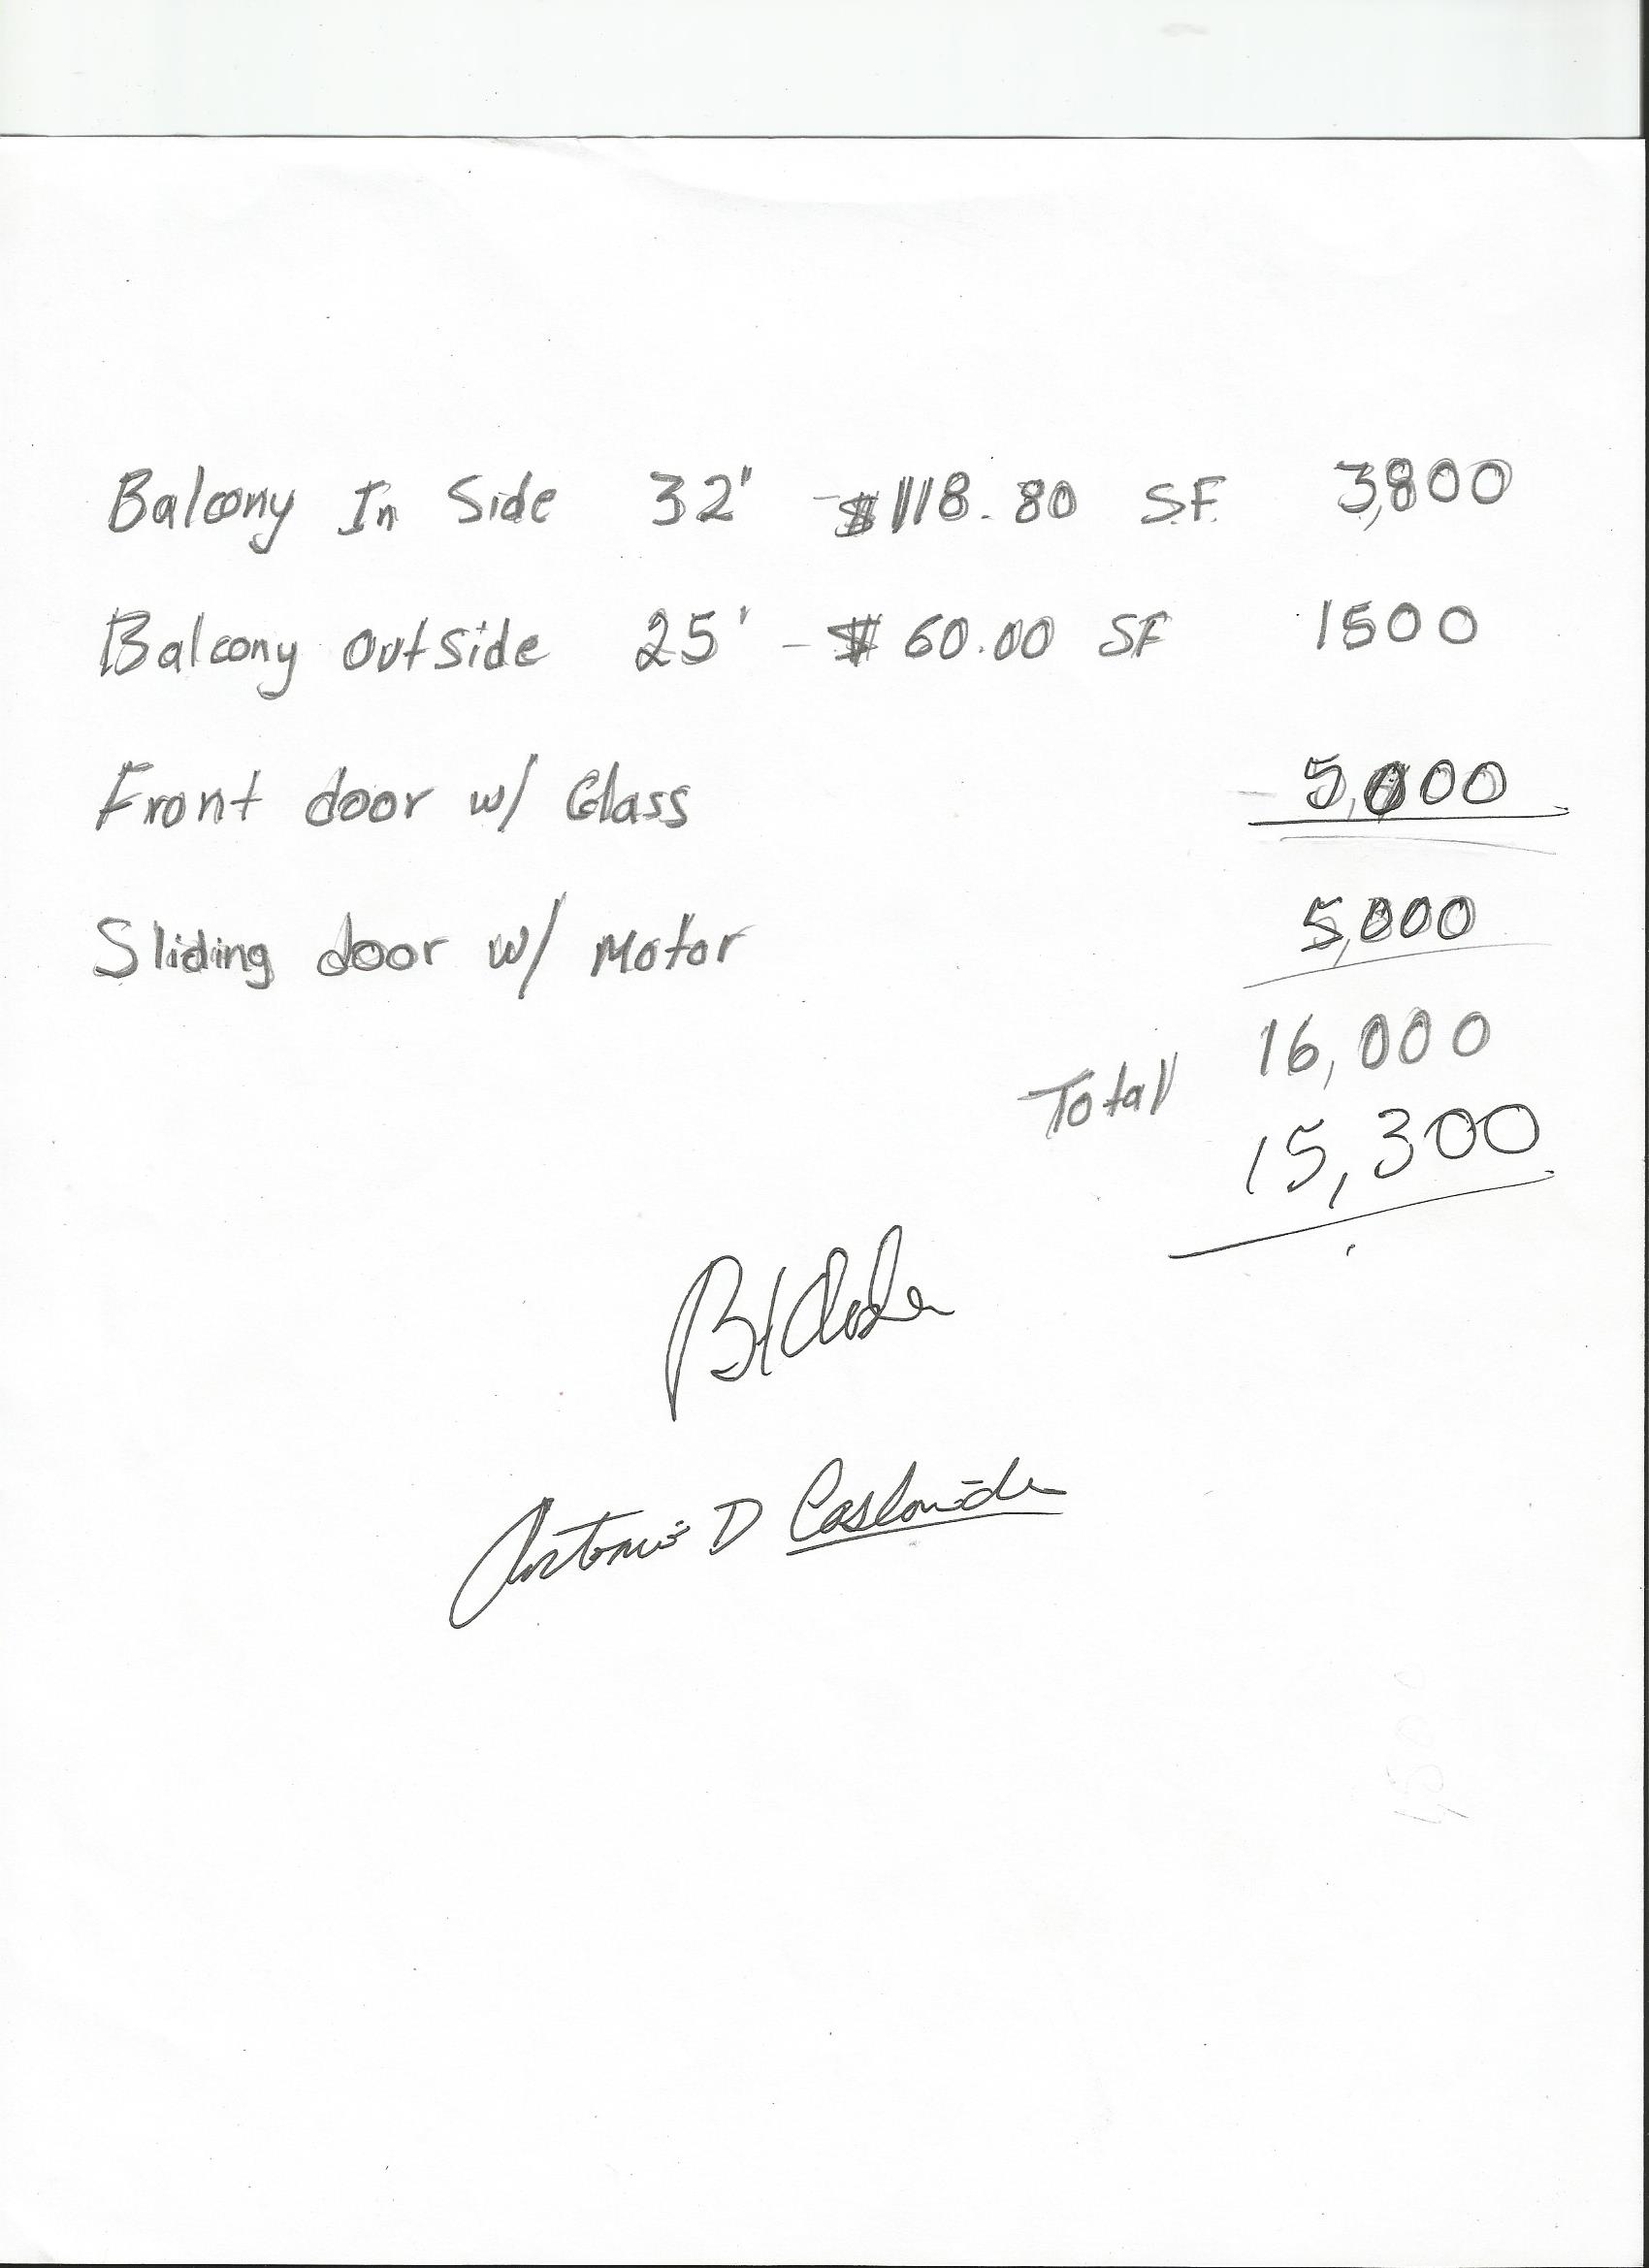 Balcony In Side 32' - $118.80 S.F. 3,800
Balcony Outside 25' - $60.00 SF 1500
Front door w/ Glass 5,000
Sliding door w/ Motor 5,000
16,000
Total
15,300
Antonio D